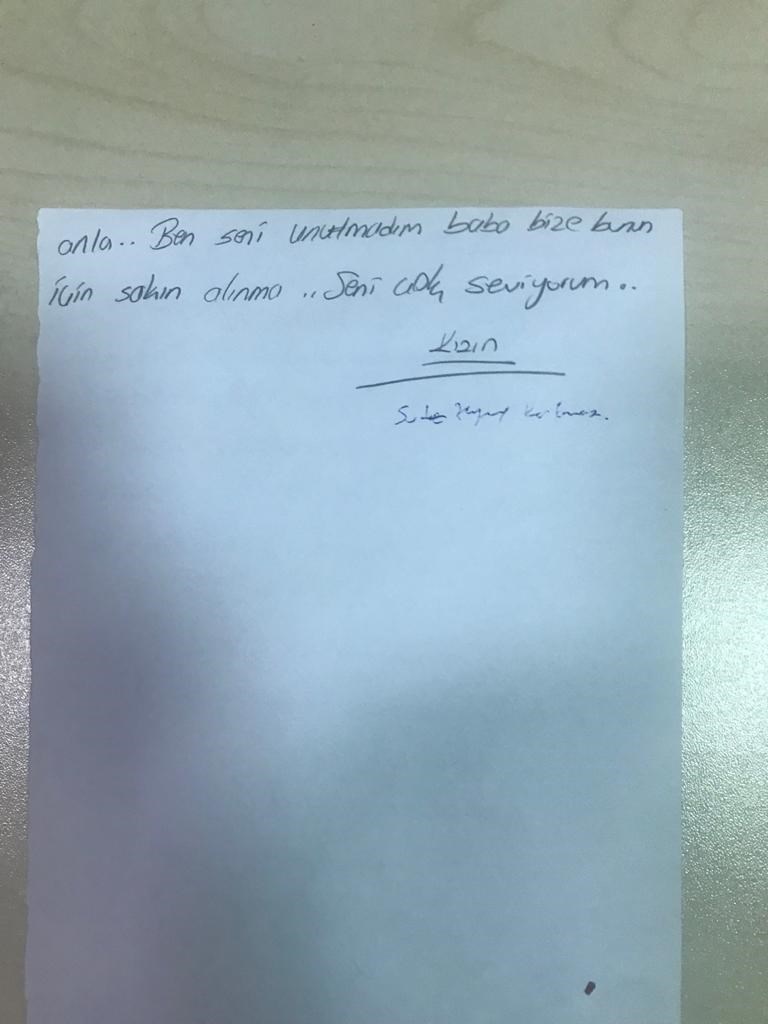 anla.. Ben seni unutmadım baba bize bunun
için sakın alınma .. Seni çok seviyorum..
Kızın